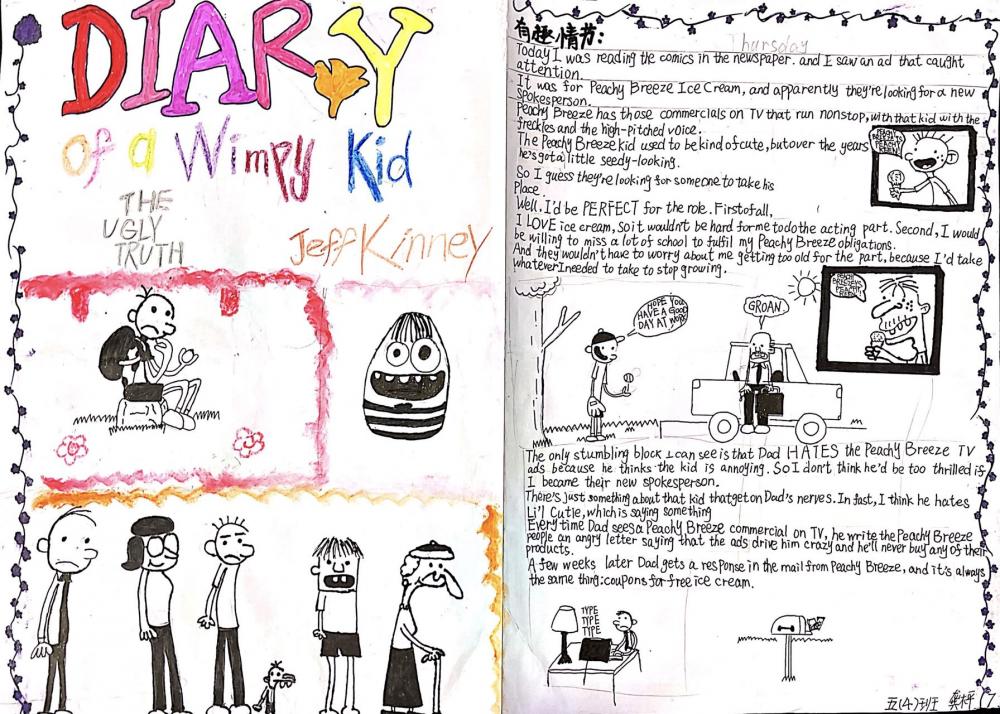 DIARY
of a Wimpy Kid
THE
UGLY
TRUTH
Jeff Kinney
有趣情节:
Thursday
Today I was reading the comics in the newspaper. and I saw an ad that caught
attention.
It was for Peachy Breeze Ice Cream, and apparently they're looking for a new
spokesperson.
Peachy Breeze has those commercials on TV that run nonstop, with that kid with the
freckles and the high-pitched voice.
The Peachy Breeze kid used to be kind of cute, but over the years
he's got a little seedy-looking.
So I guess they're looking for someone to take his
Place.
Well, I'd be PERFECT for the role. First of all,
I LOVE ice cream, so it wouldn't be hard for me to do the acting part. Second, I would
be willing to miss a lot of school to fulfil my Peachy Breeze obligations.
And they wouldn't have to worry about me getting too old for the part, because I'd take
whatever I needed to take to stop growing.
HOPE YOU
HAVE A GOOD
DAY AT WORK
GROAN.
The only stumbling block I can see is that Dad HATES the Peachy Breeze TV
ads because he thinks the kid is annoying. So I don't think he'd be too thrilled if
I became their new spokesperson.
There's just something about that kid that get on Dad's nerves. In fast, I think he hates
Li'l Cutie, which is saying something
Every time Dad sees a Peachy Breeze commercial on TV, he write the Peachy Breeze
people an angry letter saying that the ads drive him crazy and he'll never buy any of their
products.
A few weeks later Dad gets a response in the mail from Peachy Breeze, and it's always
the same thing: coupons for free ice cream.
TYPE
TYPE
TYPE
五(4)班